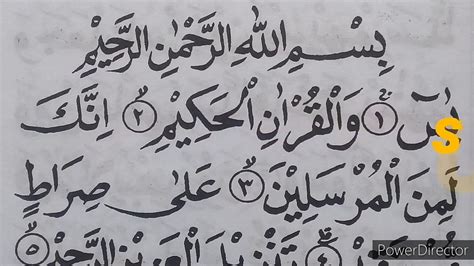 بِسْمِ اللهِ الرَّحْمٰنِ الرَّحِيْمِ
يٰسٓ ۚ ١ وَالْقُرْاٰنِ الْحَكِيْمِ ۙ ٢ اِنَّكَ
S
لَمِنَ الْمُرْسَلِيْنَ ۙ ٣ عَلٰى صِرَاطٍ
٤ تَنْزِيْلَ الْعَزِيْزِ الرَّحِيْمِ ۙ ٥
PowerDirector